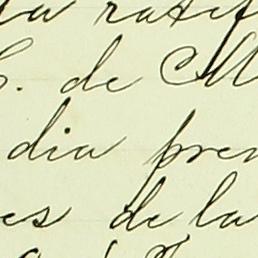 la ratif
C. de M
dia pre
es de la